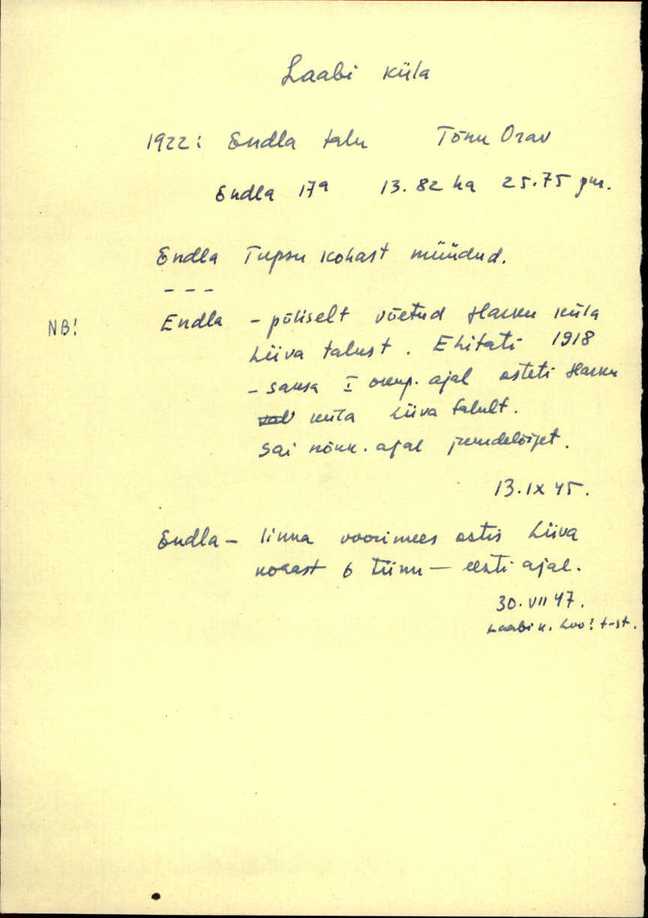 Laabi küla
1922: Endla talu Tõnu Orav
Endla 17a 13.82 ha 25.75
Endla Tupsu kohast müüdud.
– – –
NB! Endla – põliselt võetud Harku küla
Liiva talust. Ehitati 1918
– saksa I okup. ajal osteti Harku
küla Liiva talult.
Sai nõuk. ajal juurdelõiget.
13.IX 45.
Endla – linna voorimees ostis Liiva
kohast 6 tiinu – eesti ajal.
30.VII 47.
Laabi k. Loo! t-st.